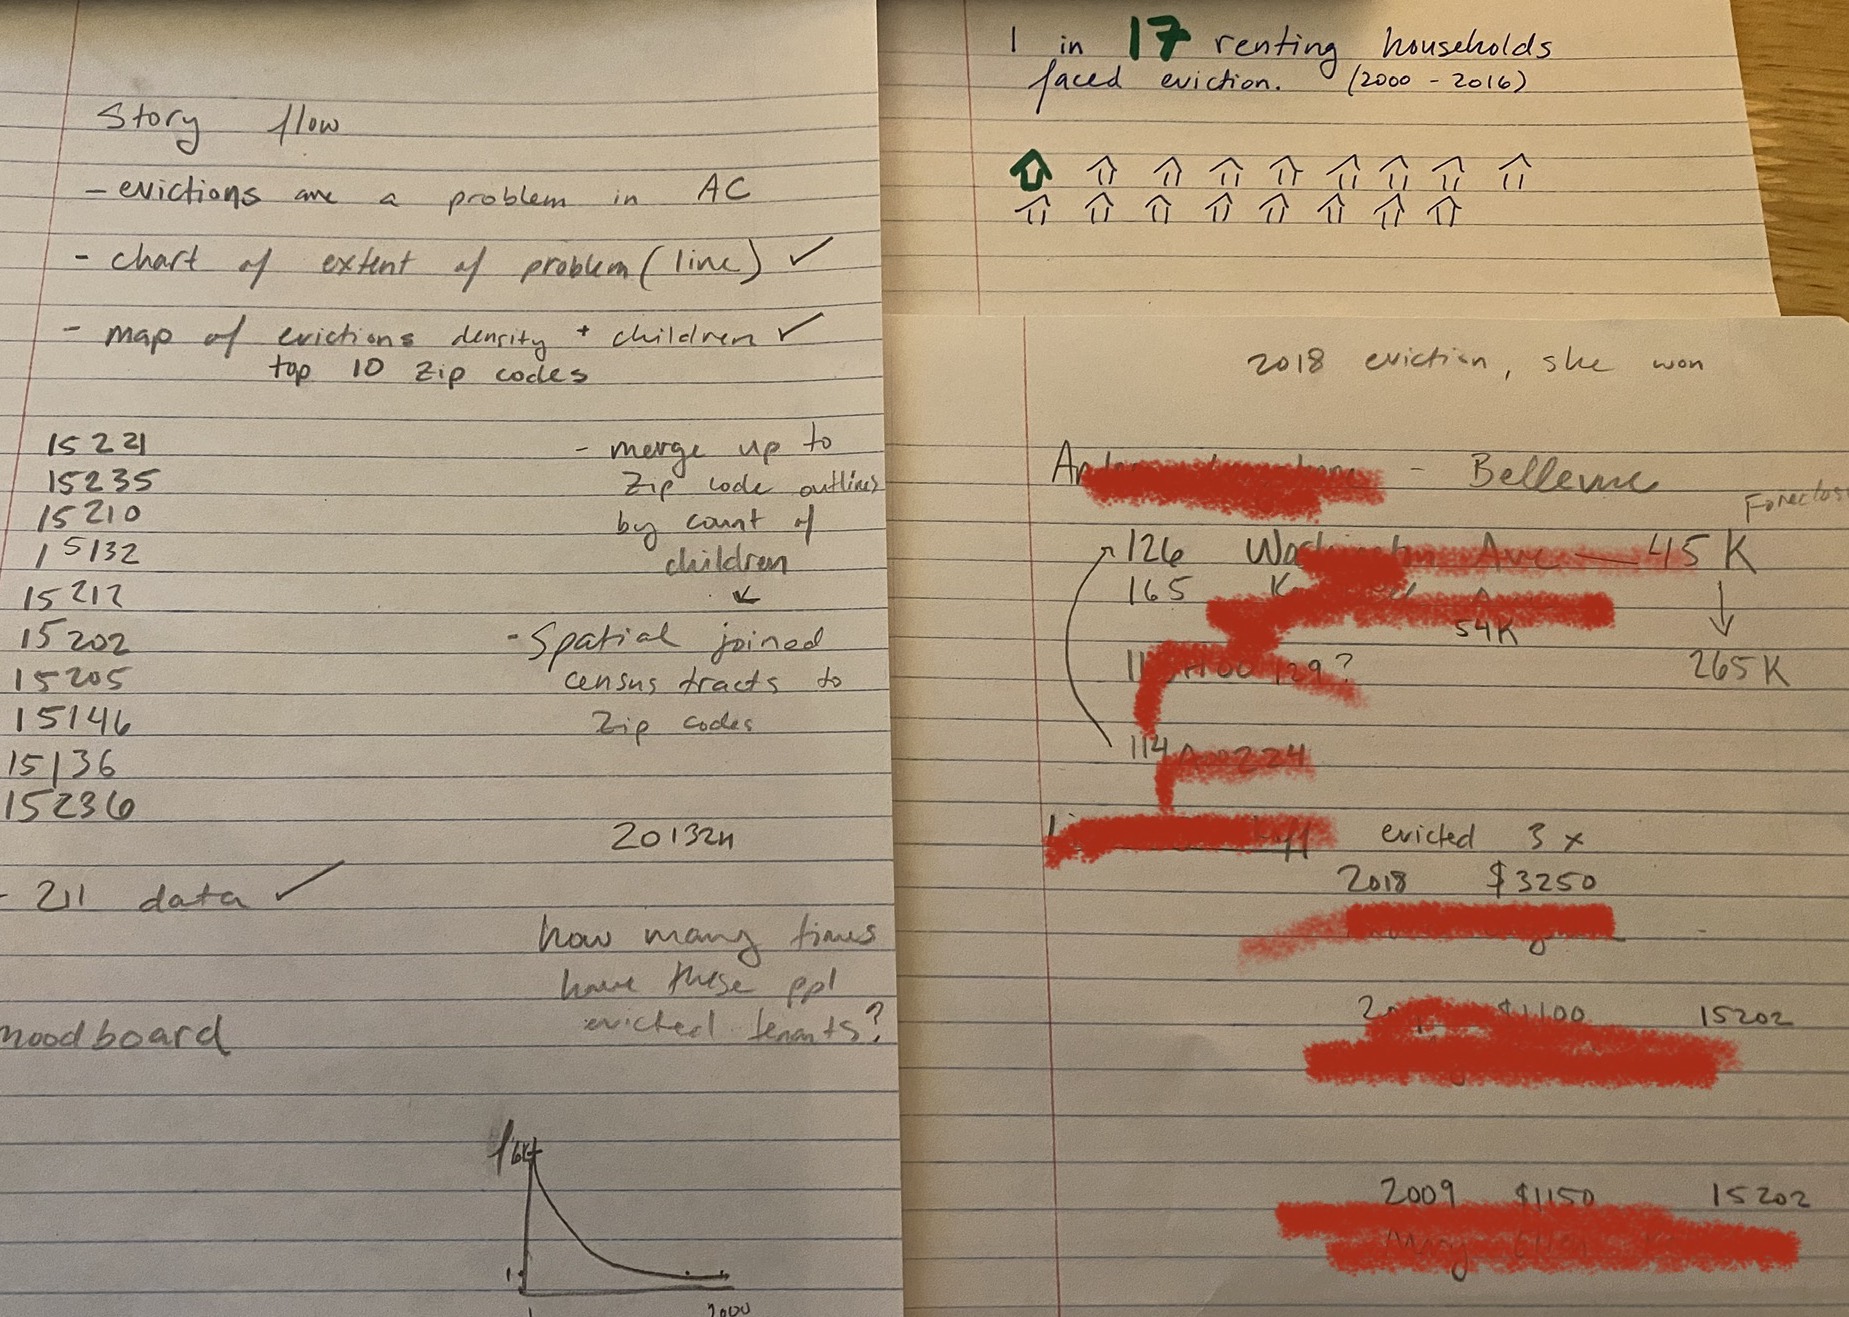 Story flow
- evictions are a problem in AC
- chart of extent of problem (line) ✓
- map of evictions density + children ✓
top 10 zip codes
15221
15235
15210
15132
15212
15202
15205
15146
15136
15236
- merge up to
zip code outlines
by count of
children
- spatial joined
census tracts to
zip codes
201324
- 211 data ✓
how many times
have these ppl
evicted tenants?
moodboard
1
2000
1 in 17 renting households
faced eviction. (2000 - 2016)
2018 eviction, she won
- Bellevue
126 Ave - 45K
165
54K
265K
114
evicted 3x
2018 $3250
$1100 15202
2009 $1150 15202